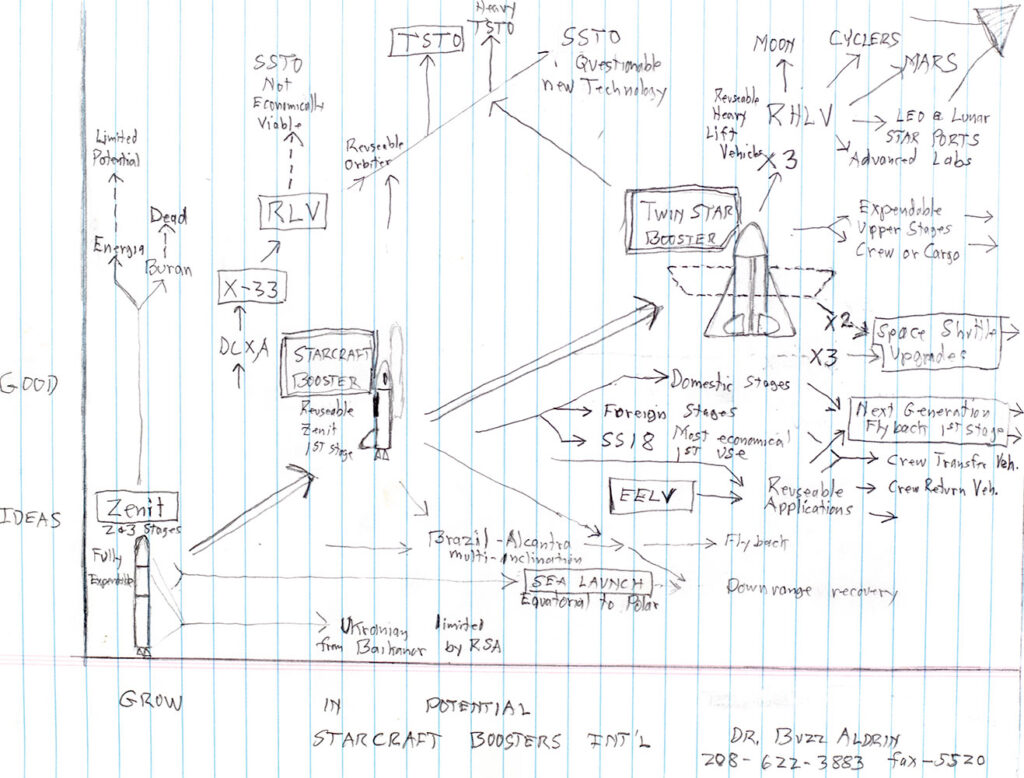 Heavy
TSTO
TSTO
SSTO
Questionable
new Technology
MOON
CYCLERS
MARS
SSTO
Not
Economically
Viable
Reuseable
Heavy
Lift
Vehicles
RHLV
X3
LEO & Lunar
STAR PORTS
Advanced Labs
Limited
Potential
Reuseable
Orbiter
RLV
Dead
Energia
Buran
TWIN STAR
BOOSTER
Expendable
Upper Stages
Crew or Cargo
X-33
DCX,A
STARCRAFT
BOOSTER
Reuseable
Zenit
1ST Stage
X2
X3
Space Shuttle
Upgrades
GOOD
Domestic Stages
Foreign Stages
SS18 Most economical
1ST use
Next Generation
Flyback 1st Stage
Crew Transfer Veh.
EELV
Reuseable
Applications
Crew Return Veh.
IDEAS
Zenit
2&3 Stages
Fully
Expendable
Brazil-Alcantra
multi-inclination
Flyback
SEA LAUNCH
Equatorial to Polar
Downrange recovery
Ukrainian limited
from Baikanor by RSA
GROW IN POTENTIAL
STARCRAFT BOOSTERS INT'L
DR. BUZZ ALDRIN
208-622-3883 fax-5520